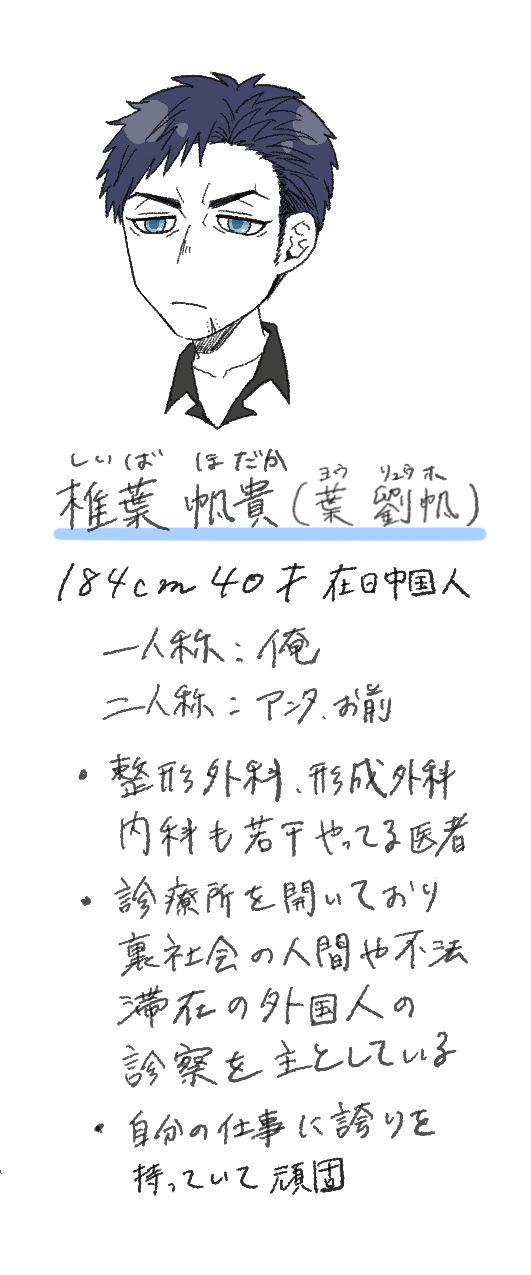 しいば ほだか
椎葉 帆貴(葉 劉帆)
ヨウ リュウホ
184cm 40才 在日中国人
一人称:俺
二人称:アンタ、お前
・整形外科、形成外科
内科も若干やってる医者
・診療所を開いており
裏社会の人間や不法
滞在の外国人の
診察を主としている
・自分の仕事に誇りを
持っていて頑固